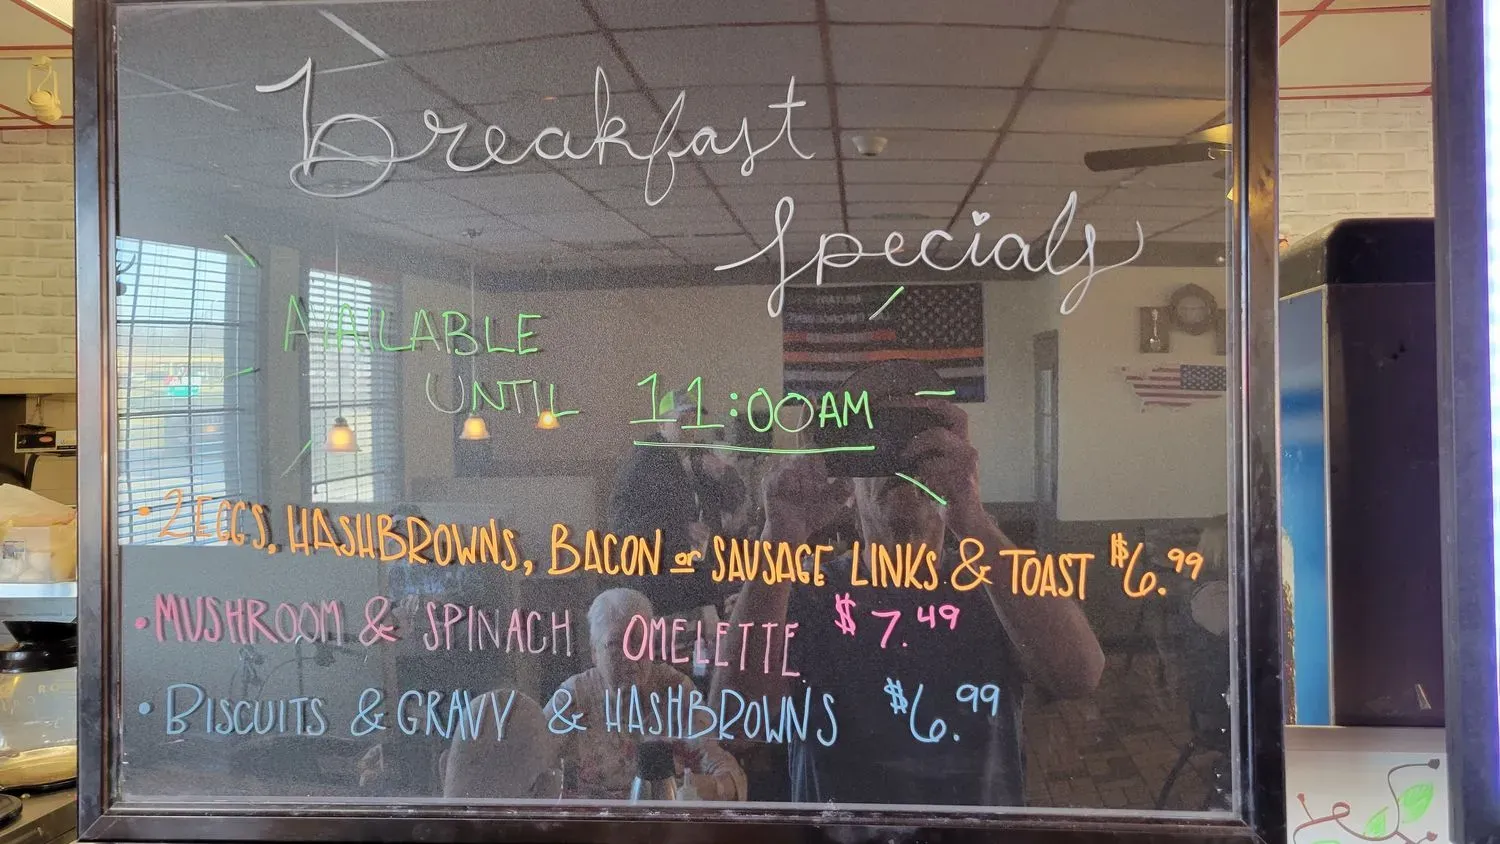 Breakfast
Specials
AVAILABLE
UNTIL 11:00AM
• 2 EGGS, HASHBROWNS, BACON or SAUSAGE LINKS & TOAST $6.99
• MUSHROOM & SPINACH OMELETTE $7.49
• BISCUITS & GRAVY & HASHBROWNS $6.99